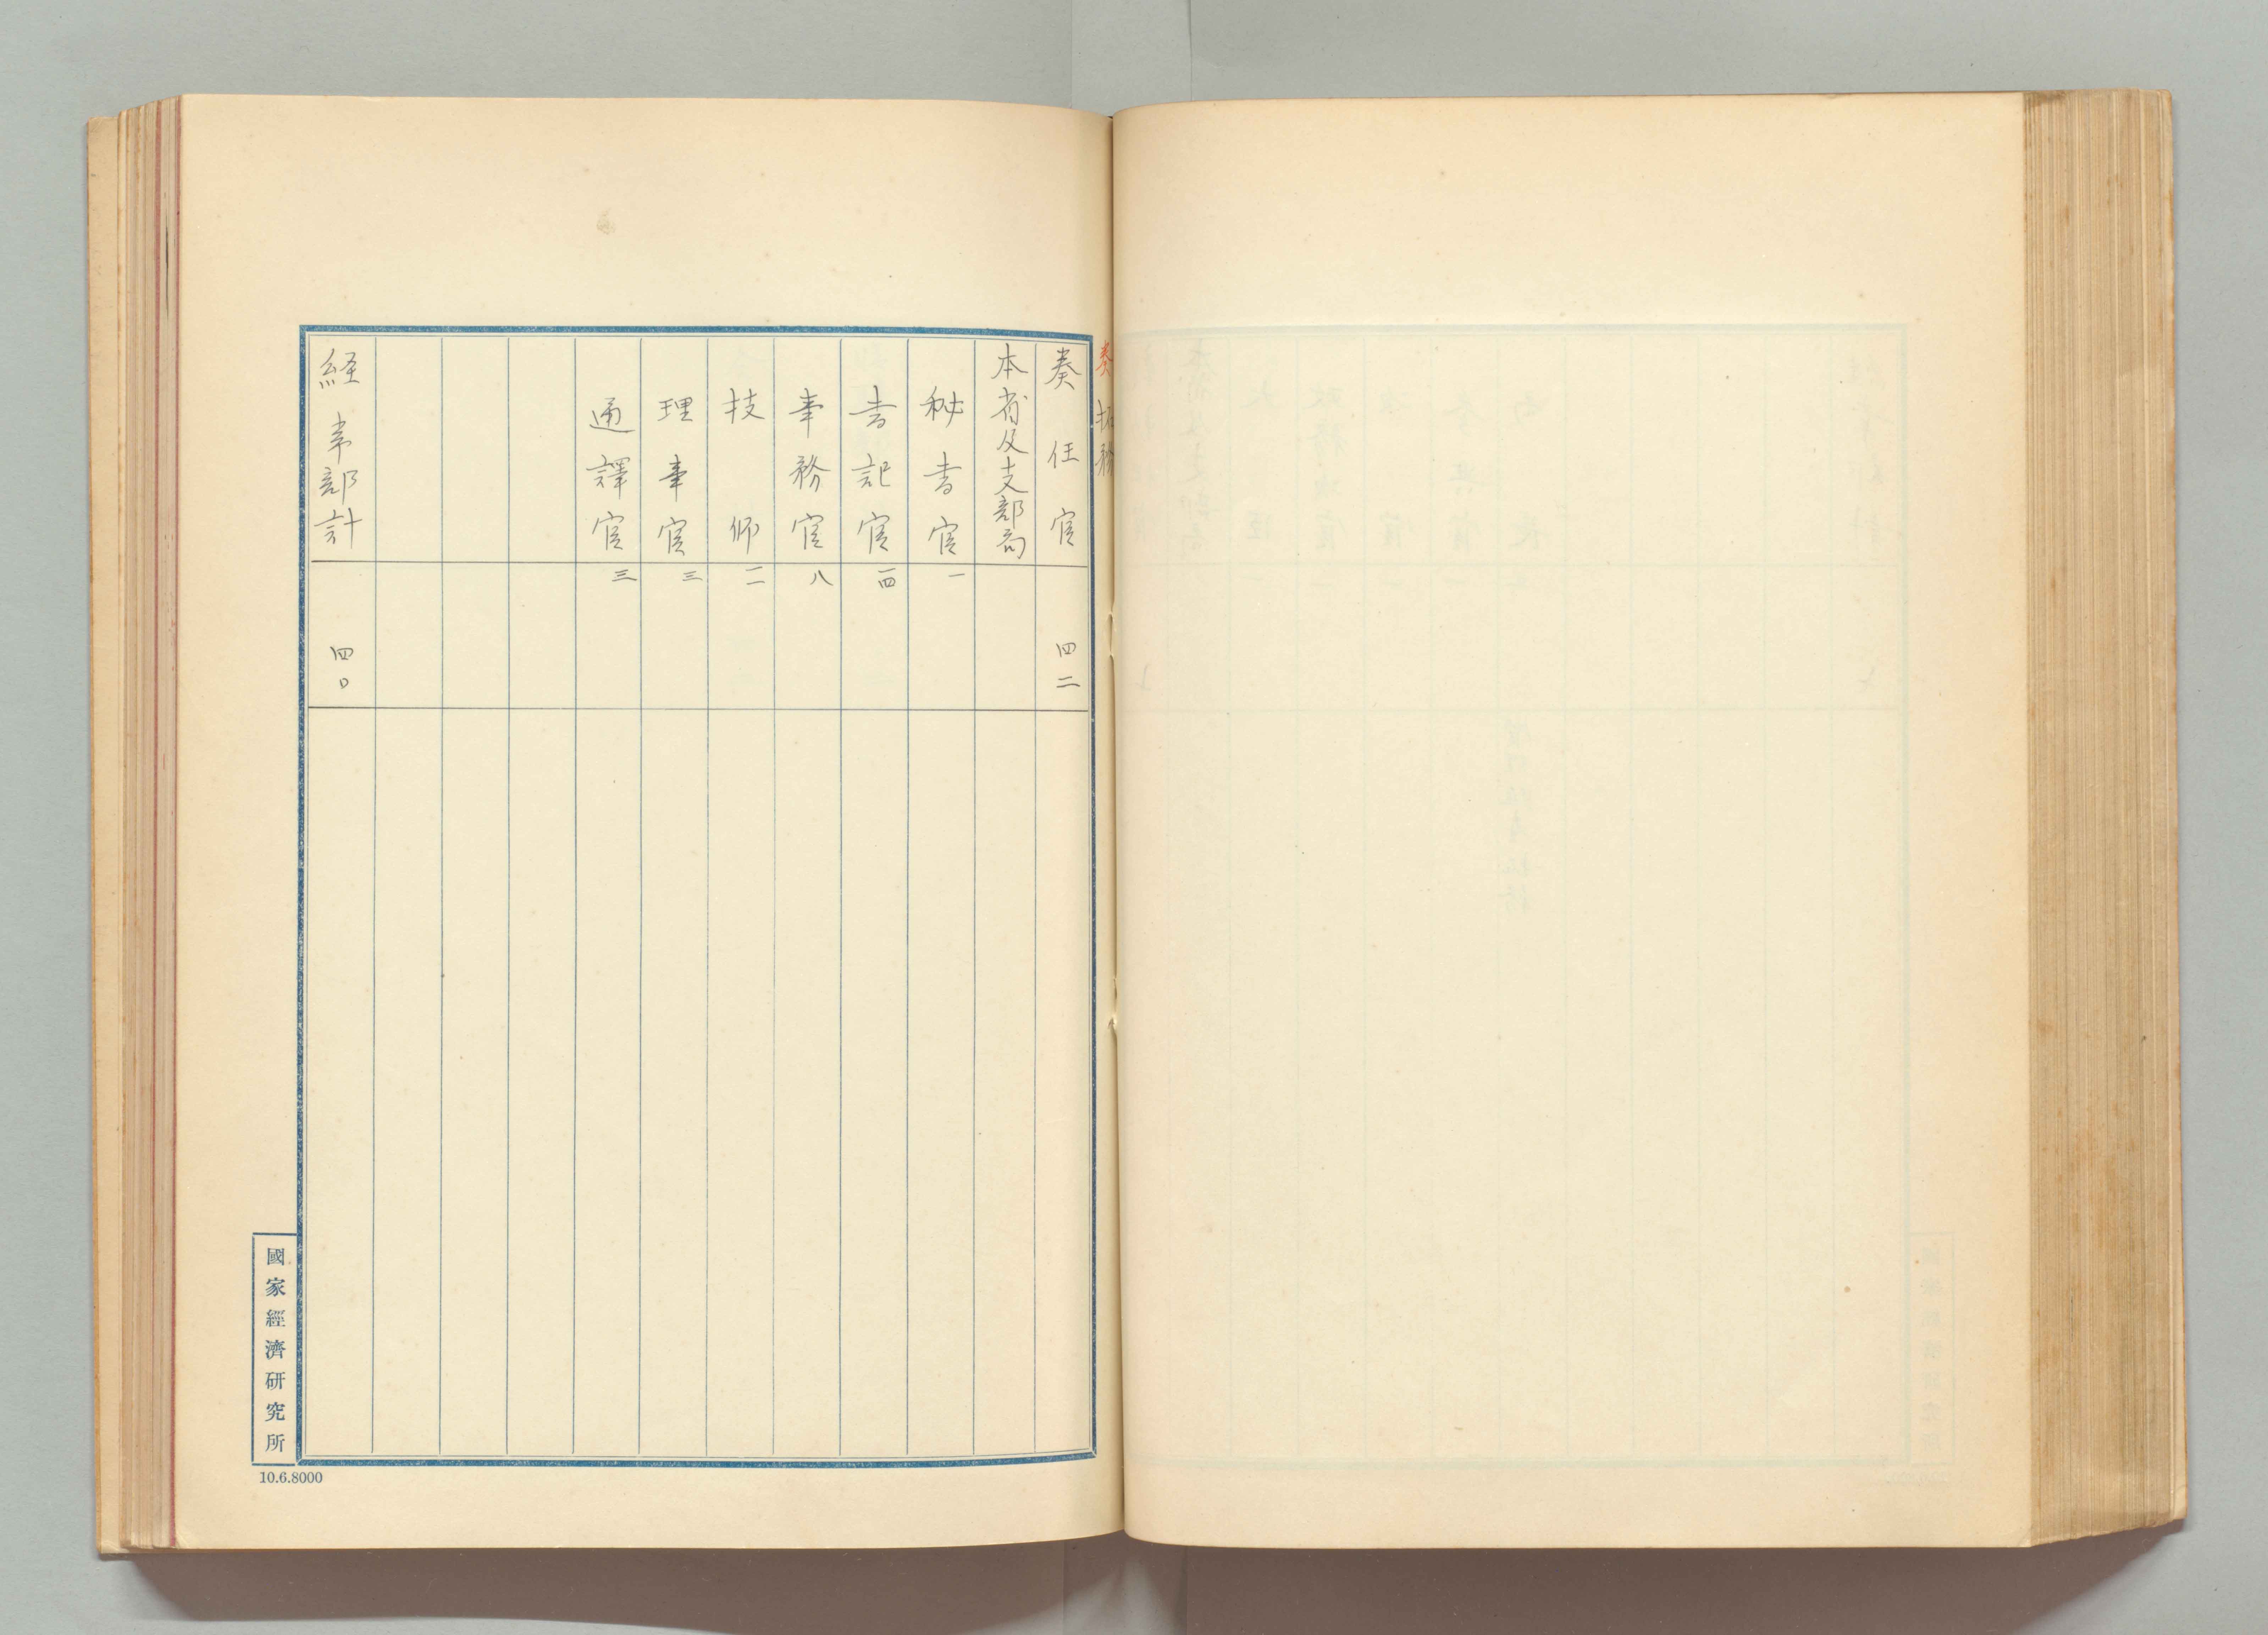 奏 拓務
奏任官 四二
本省及支部局
秘書官 一
書記官 一四
事務官 八
技師 一一
理事官 三
通譯官 三
経常部計 四〇
國家經濟研究所
10.6.8000